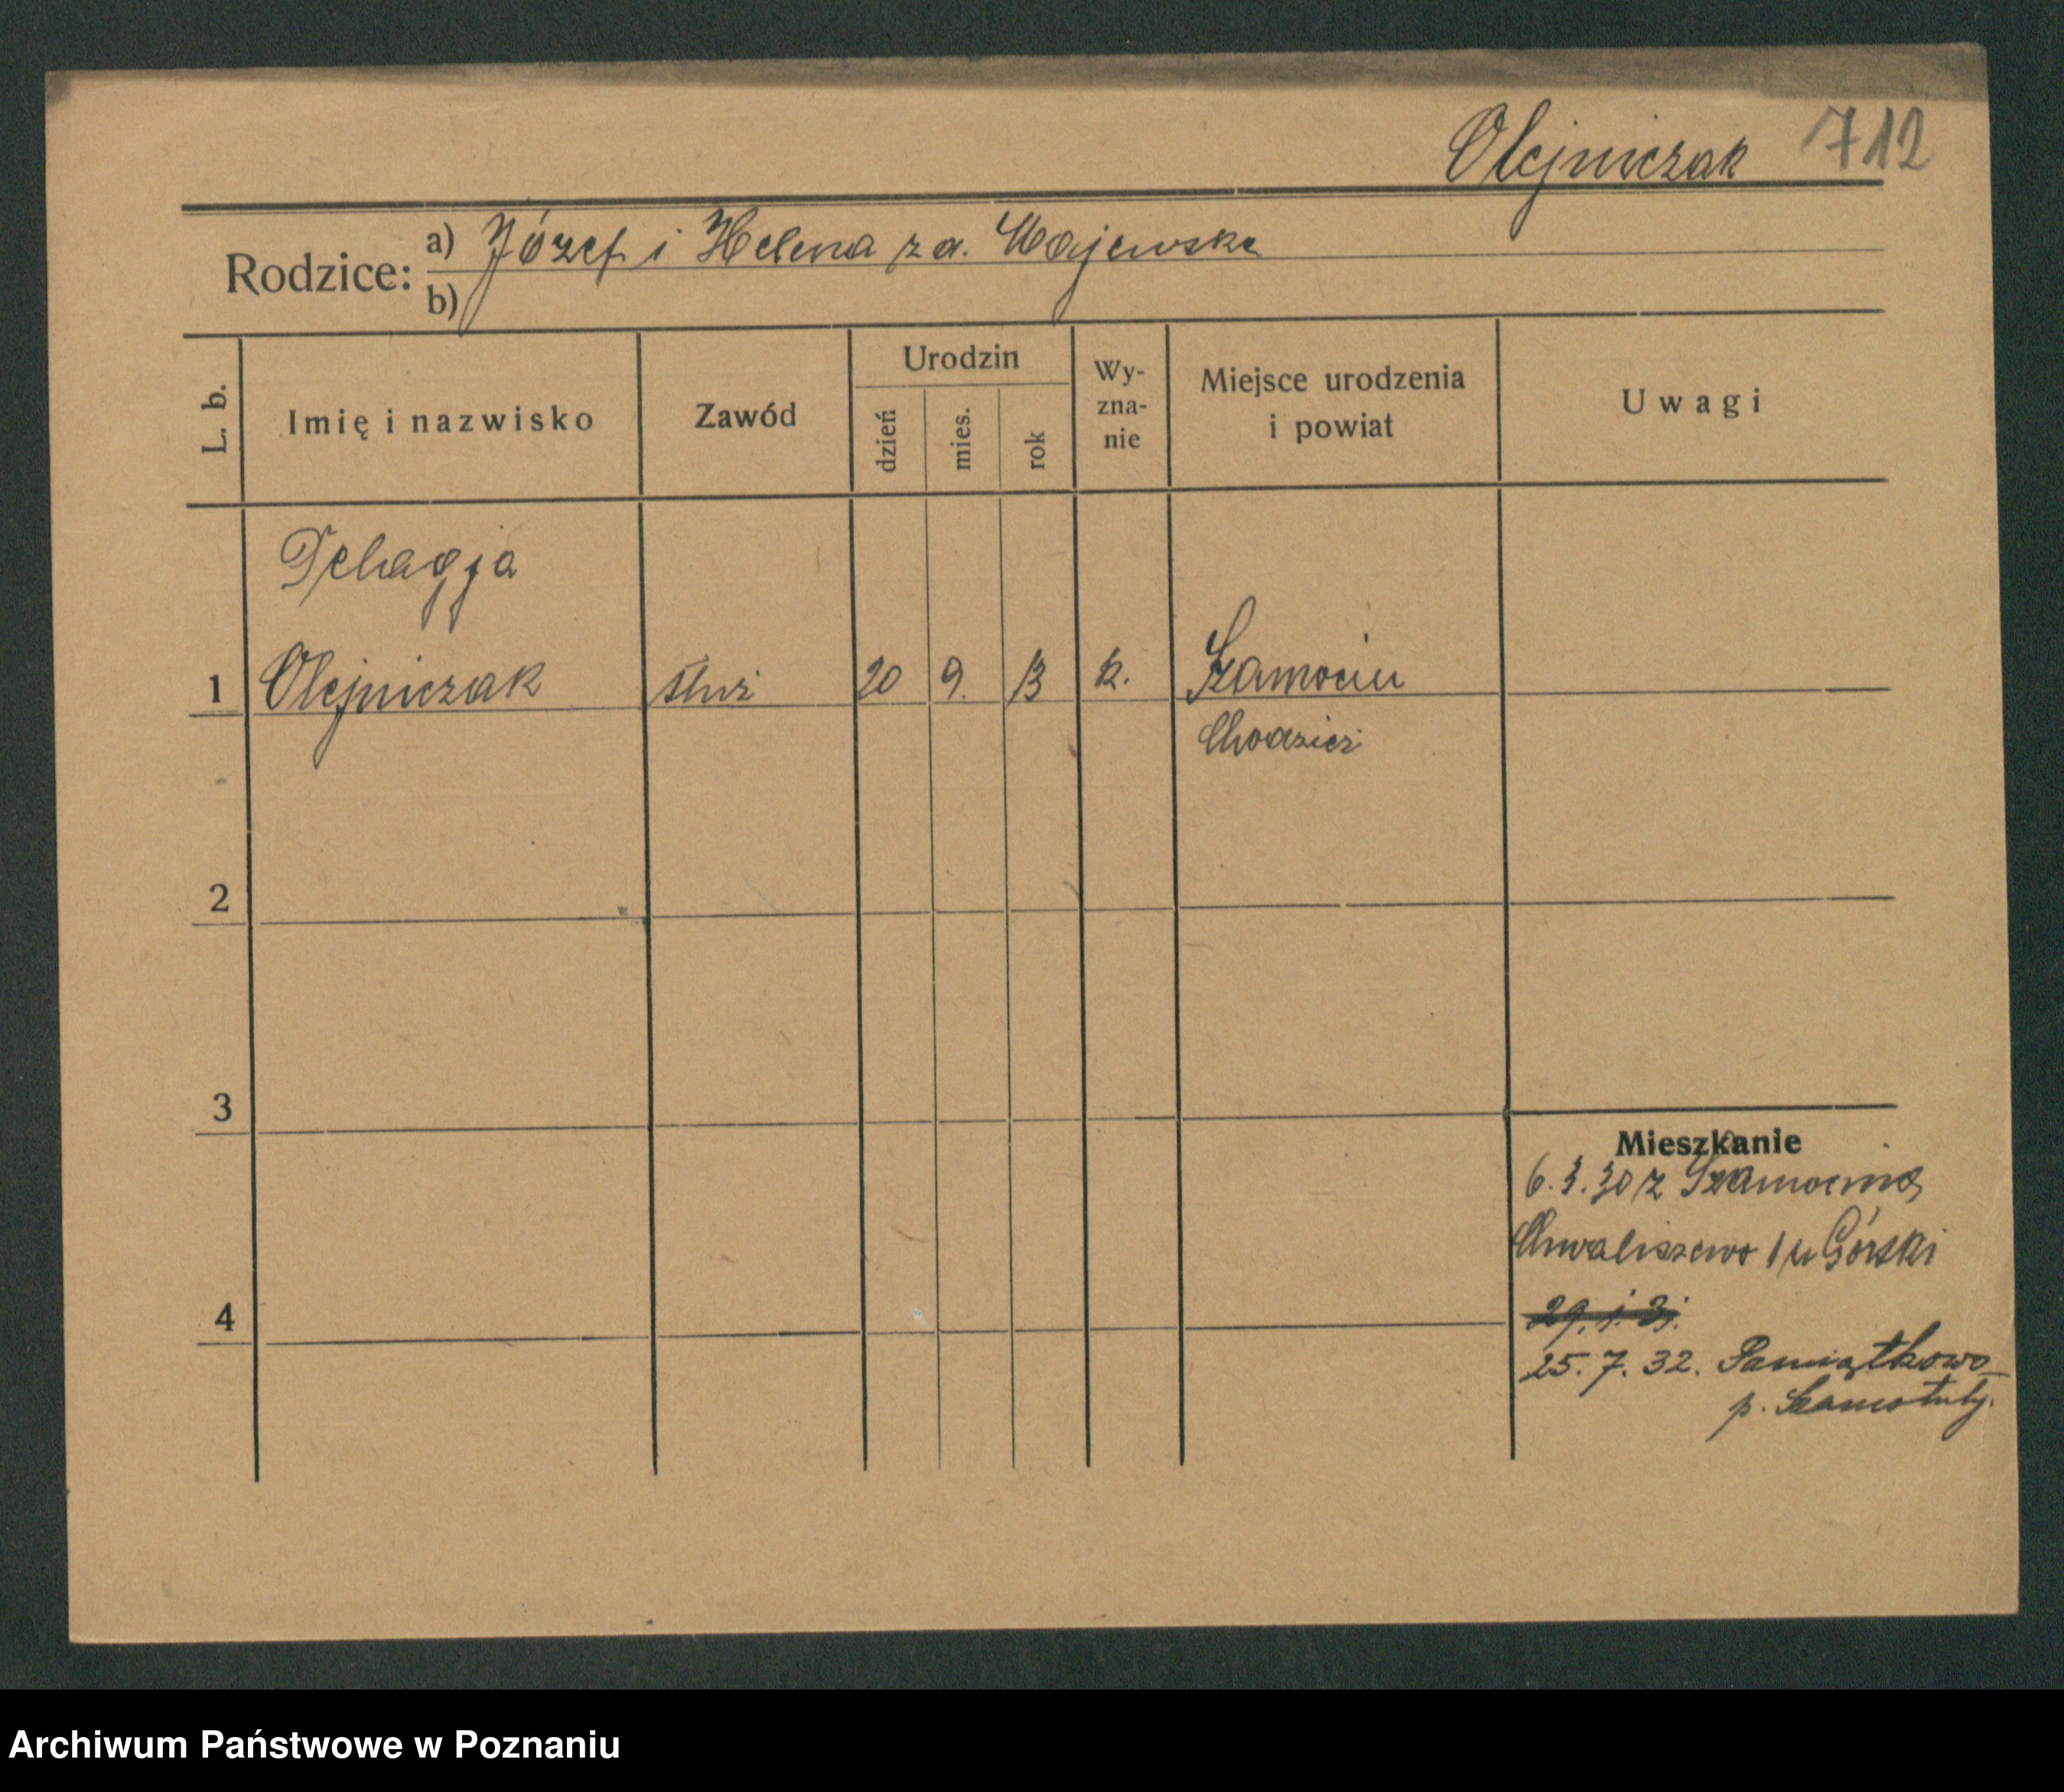 Olejniczak 712
Rodzice:
a) Józef i Helena za. Majewska
b)
L. b.
Imię i nazwisko
Zawód
Urodzin
dzień
mies.
rok
Wy-
zna-
nie
Miejsce urodzenia
i powiat
Uwagi
Pelagja
1 Olejniczak służ 20 9. 13 k. Szamocin
Chodzież
2
3
4
Mieszkanie
6. 3. 30 z Szamocina
Chwaliszewo 1 u Górski
29. 1. 31.
25. 7. 32. Pamiątkowo
p. Szamotuły.
Archiwum Państwowe w Poznaniu